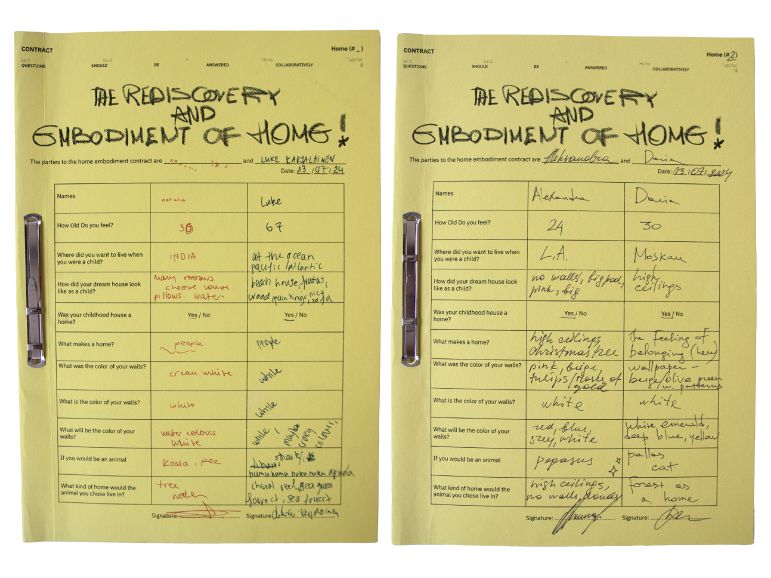 CONTRACT
Home (# _ )
QUESTIONS SHOULD BE ANSWERED COLLABORATIVELY
THE REDISCOVERY
AND
EMBODIMENT OF HOME!
The parties to the home embodiment contract are and LUKE KARJALAINEN
Date: 13.07.24
Names Luke
How Old Do you feel? 30 67
Where did you want to live when you were a child? INDIA at the ocean
pacific/atlantic
How did your dream house look like as a child? many rooms
cheese house
pillows water
beach house,
wood paintings, nice
Was your childhood house a home? Yes / No Yes / No
What makes a home? people people
What was the color of your walls? cream white white
What is the color of your walls? white white
What will be the color of your walls? water colours
white
white, maybe
crazy
colours,
If you would be an animal Koala,
What kind of home would the animal you chose live in? tree
water
forrest, sea forrest
Signature: Signature:
CONTRACT
Home (# 2)
QUESTIONS SHOULD BE ANSWERED COLLABORATIVELY
THE REDISCOVERY
AND
EMBODIMENT OF HOME!
The parties to the home embodiment contract are and Daria
Date: 13.07.2024
Names Alexandra Daria
How Old Do you feel? 24 30
Where did you want to live when you were a child? L.A. Moskau
How did your dream house look like as a child? no walls, big pool,
pink, big
high
ceilings
Was your childhood house a home? Yes / No Yes / No
What makes a home? high ceilings
christmas tree
the feeling of
belonging (here)
What was the color of your walls? pink, beige,
tulips/ of
gold
wallpaper -
beige/olive green
w. patterns
What is the color of your walls? white white
What will be the color of your walls? red, blue,
grey, white
white emerald,
deep blue, yellow
If you would be an animal pegasus pallas
cat
What kind of home would the animal you chose live in? high ceilings,
no walls, clouds
forest as
a home
Signature: Signature: